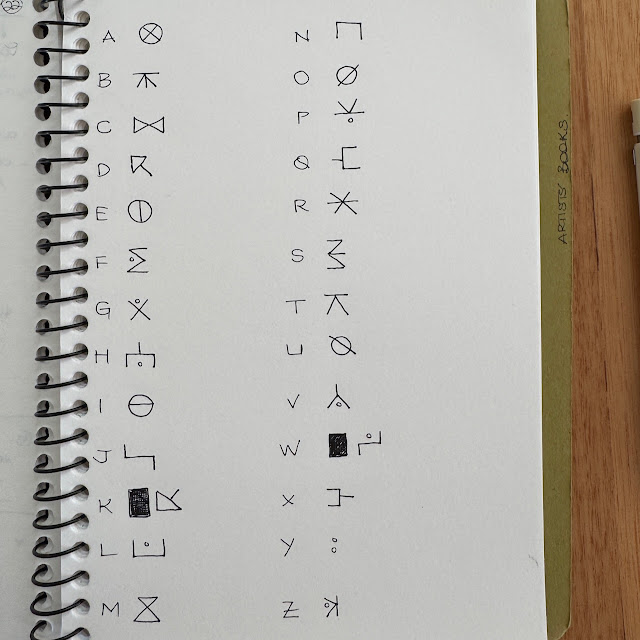 A
B
C
D
E
F
G
H
I
J
K
L
M
N
O
P
Q
R
S
T
U
V
W
X
Y
Z
ARTISTS' BOOKS